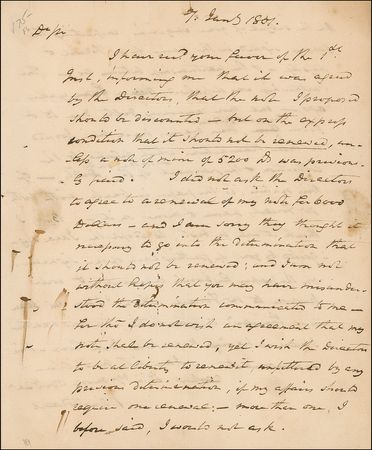 7. Jany 1801.
Dr Sir
I have recd. your favor of the 1st.
Inst, informing me that it was agreed
by the Directors, that the note I proposed
should be discounted – but on the express
condition that it should not be renewed, un-
less a note of mine of 5200 Ds was previous-
ly paid. I did not ask the Directors
to agree to a renewal of my note for 6000
Dollars – and I am sorry they thought it
necessary to go into the determination that
it should not be renewed; and I am not
without hopes that you may have misunder-
stood the determination communicated to me –
for tho I do not wish an agreement that my
note shall be renewed, yet I wish the Directors
to be at liberty to renew it unfettered by any
previous determination, if my affairs should
require one renewal; – more than one, I
before said, I would not ask.